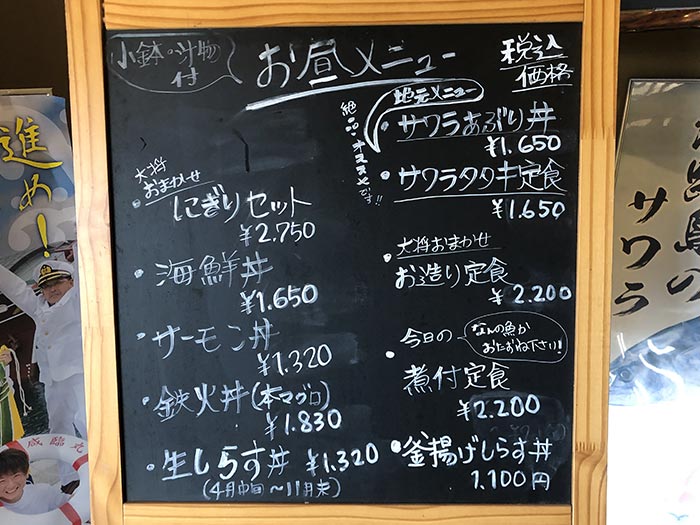 小鉢・汁物
付
お昼メニュー
税込
価格
大将
おまかせ
・にぎりセット
¥2.750
・海鮮丼
¥1.650
・サーモン丼
¥1.320
・鉄火丼(本マグロ)
¥1.830
・生しらす丼 ¥1.320
(4月中旬〜11月末)
地元メニュー
絶品オススメです!!
・サワラあぶり丼
¥1.650
・サワラタタキ定食
¥1.650
大将おまかせ
・お造り定食
¥2.200
・今日の
なんの魚か
おたずね下さい!
煮付定食
¥2.200
・釜揚げしらす丼
1.100円
進め!
咸臨丸
島の
サワラ